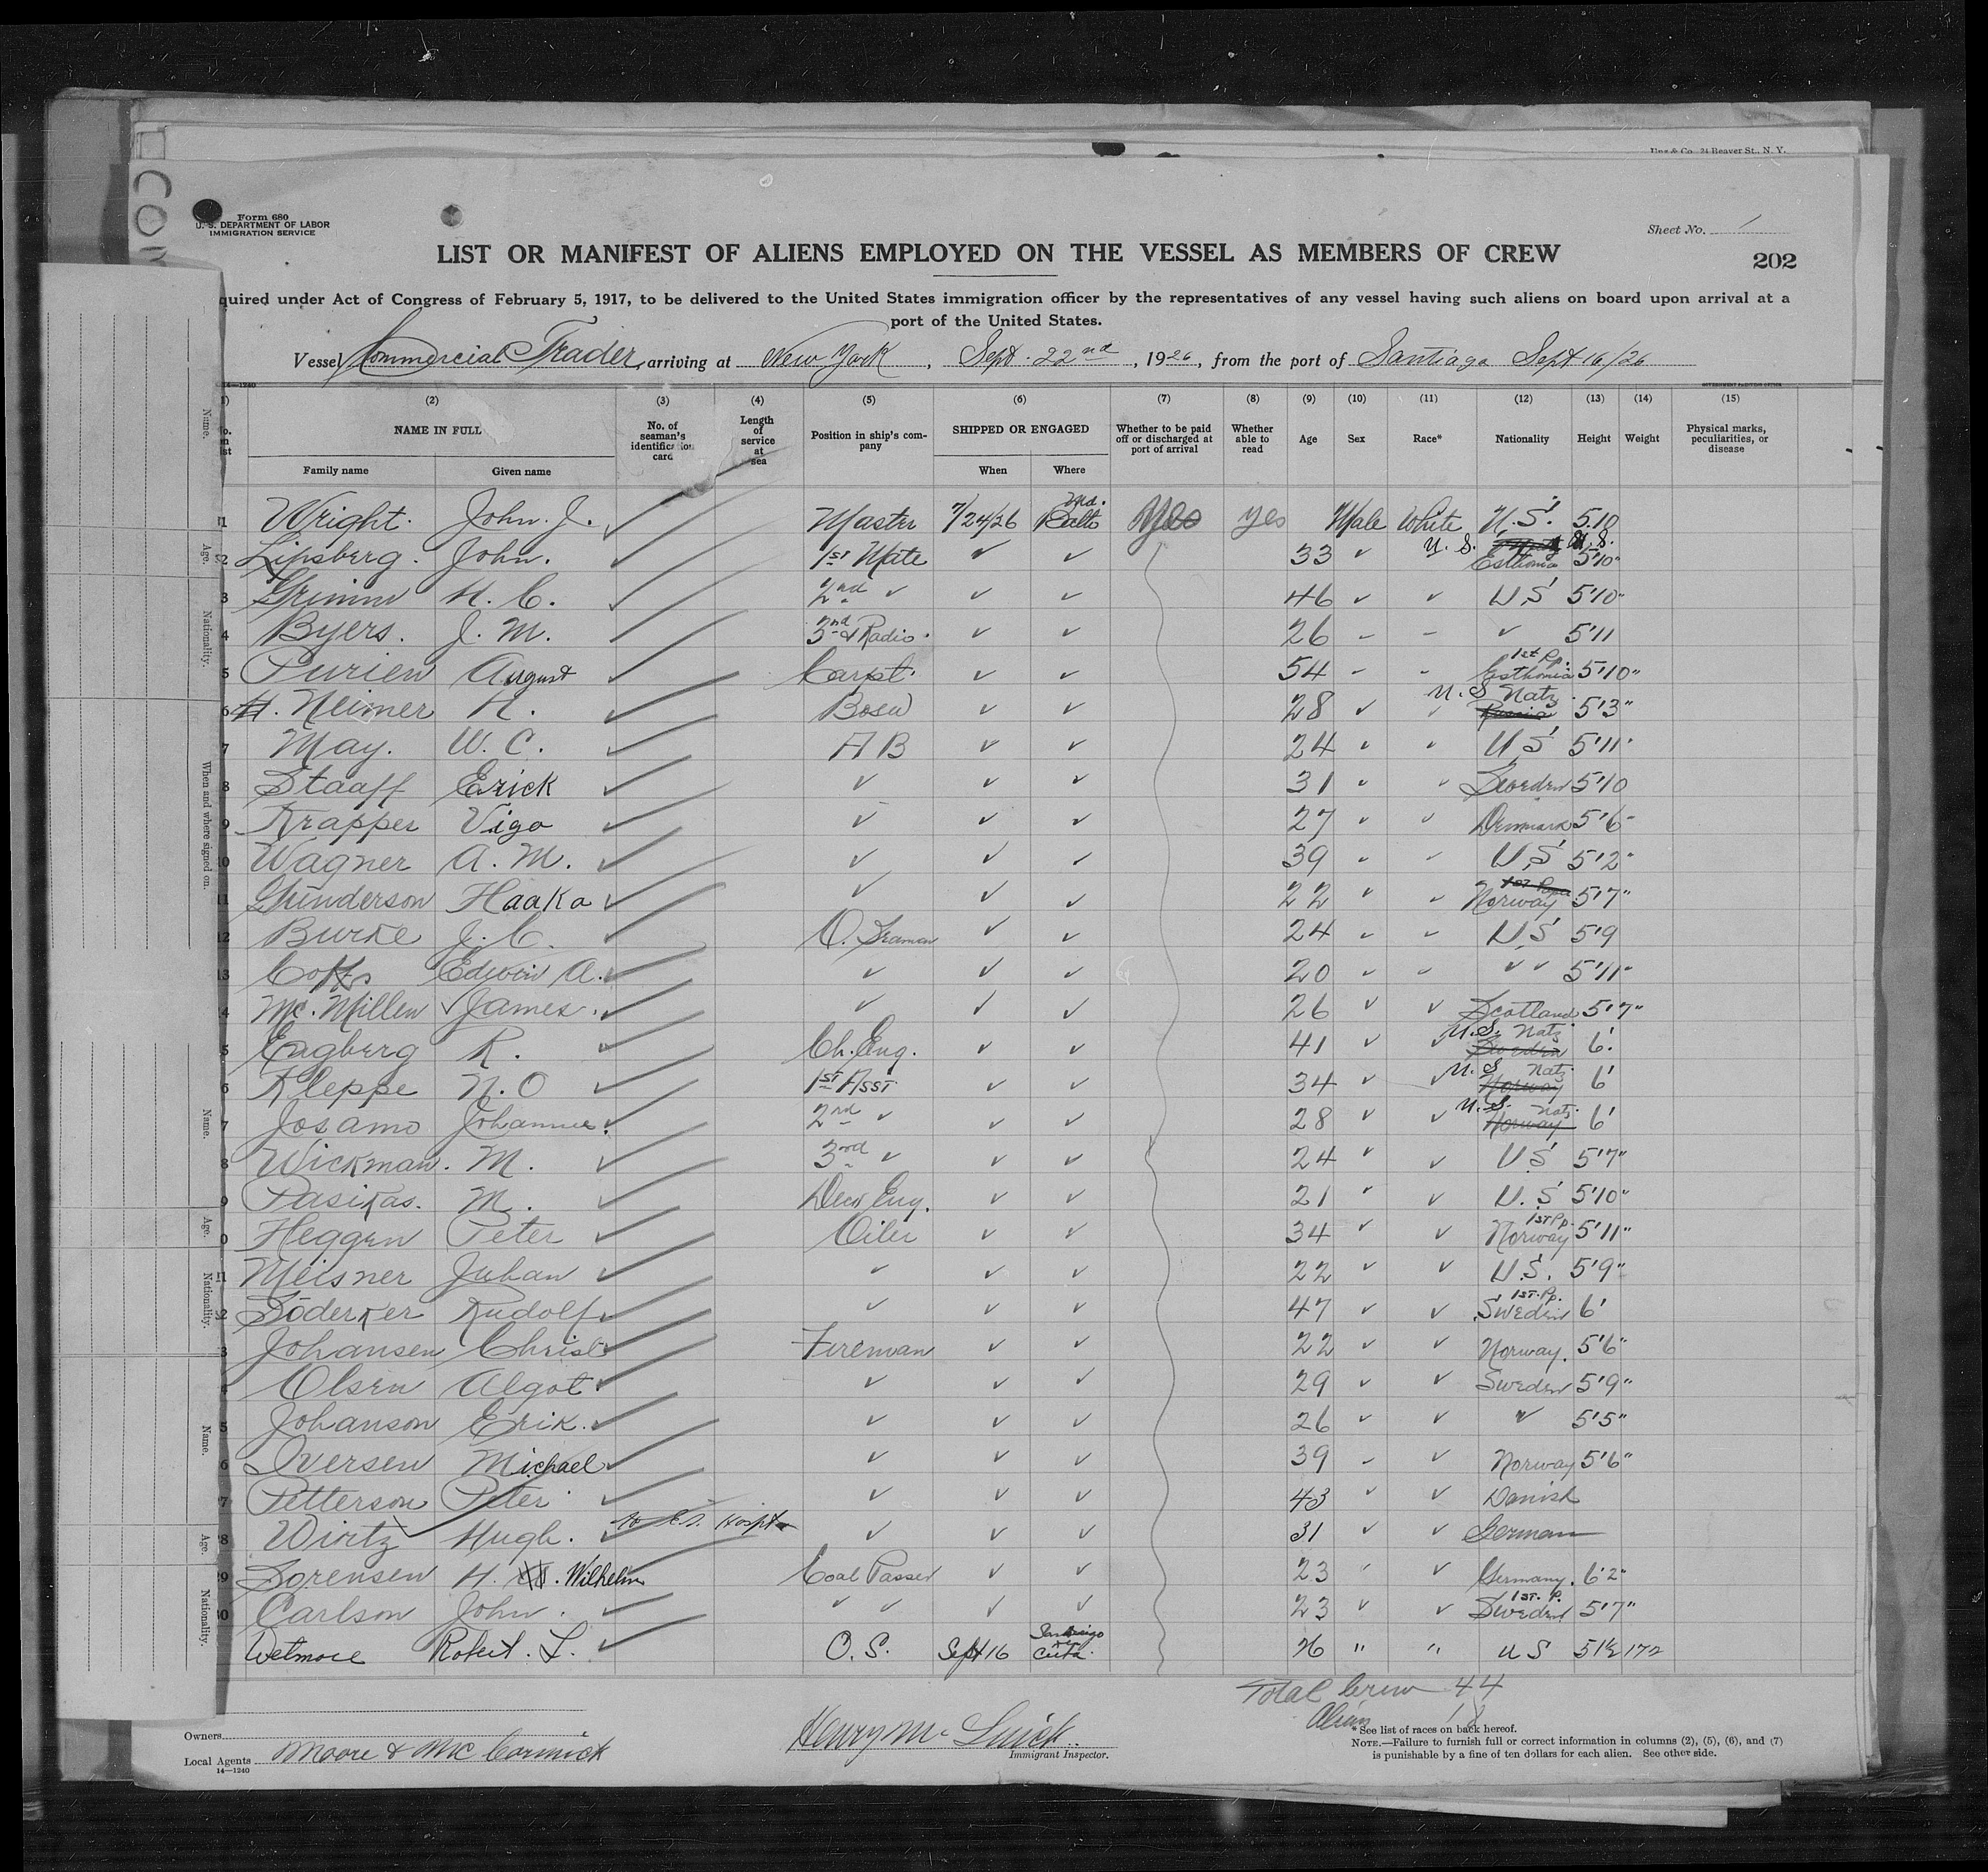 Ung & Co., 24 Beaver St., N. Y.
Form 680
U. S. DEPARTMENT OF LABOR
IMMIGRATION SERVICE
Sheet No. 1
LIST OR MANIFEST OF ALIENS EMPLOYED ON THE VESSEL AS MEMBERS OF CREW
202
quired under Act of Congress of February 5, 1917, to be delivered to the United States immigration officer by the representatives of any vessel having such aliens on board upon arrival at a
port of the United States.
Vessel Commercial Trader, arriving at New York, Sept. 22nd, 1926, from the port of Santiago Sept 16/26
14—1240
(2) (3) (4) (5) (6) (7) (8) (9) (10) (11) (12) (13) (14) (15)
NAME IN FULL No. of seaman's identification card Length of service at sea Position in ship's company SHIPPED OR ENGAGED Whether to be paid off or discharged at port of arrival Whether able to read Age Sex Race* Nationality Height Weight Physical marks, peculiarities, or disease
Family name Given name When Where
1 Wright. John. J. ✓ Master 7/24/26 Balto Md. Yes yes Male White U.S. 5.10
2 Lipsberg. John. 1st Mate ✓ ✓ 33 ✓ U. S. Esthonia U.S. 5'10"
3 Grimm H. C. 2nd ✓ ✓ ✓ 46 ✓ ✓ US 5'10"
4 Byers. J. M. 3rd & Radio. ✓ ✓ 26 - - ✓ 5'11
5 Purien August Carpt. ✓ ✓ 54 - - 1st Pp. Esthonia 5'10"
6 H. Neimer H. Bosn ✓ ✓ 28 ✓ ✓ U.S Natz. Russia 5'3"
7 May. W. C. A B ✓ ✓ 24 ✓ ✓ US 5'11"
8 Staaff Erick ✓ ✓ ✓ 31 ✓ ✓ Sweden 5'10
9 Krapper Vigo ✓ ✓ ✓ 27 ✓ ✓ Denmark 5'6"
10 Wagner A. M. ✓ ✓ ✓ 39 ✓ ✓ US 5'2"
11 Gunderson Haaka ✓ ✓ ✓ 22 ✓ ✓ 1st Papers Norway 5'7"
12 Burke J. C. O. Seaman ✓ ✓ 24 ✓ ✓ US 5'9
13 Edwin A. ✓ ✓ ✓ 20 ✓ ✓ ✓ ✓ 5'11"
4 Mc. Millen James ✓ ✓ ✓ 26 ✓ ✓ Scotland 5'7"
5 Engberg R. Ch. Eng. ✓ ✓ 41 ✓ ✓ U.S. Natz. Sweden 6'
6 Kleppe N. O 1st Asst ✓ ✓ 34 ✓ ✓ U.S Natz. Norway 6'
7 Josamo 2nd ✓ ✓ ✓ 28 ✓ ✓ U.S. Natz. Norway 6'
8 Wickman. M. 3rd ✓ ✓ ✓ 24 ✓ ✓ US 5'7"
9 Pasikas. M. Deck Eng. ✓ ✓ 21 ✓ ✓ U.S 5'10"
0 Heggen Peter Oiler ✓ ✓ 34 ✓ ✓ 1st Pp. Norway 5'11"
21 Meisner Juhan ✓ ✓ ✓ 22 ✓ ✓ U.S. 5'9"
22 Söderker Rudolf ✓ ✓ ✓ 47 ✓ ✓ 1st. Pp. Sweden 6'
3 Johansen Christ Fireman ✓ ✓ 22 ✓ ✓ Norway. 5'6"
4 Olsen Algot ✓ ✓ ✓ 29 ✓ ✓ Sweden 5'9"
5 Johanson Erik. ✓ ✓ ✓ 26 ✓ ✓ ✓ 5'5"
6 Iversen Michael ✓ ✓ ✓ 39 - ✓ Norway 5'6"
7 Petterson Peter ✓ ✓ ✓ 43 ✓ ✓ Danish
8 Wirtz Hugh. Hospt ✓ ✓ ✓ 31 ✓ ✓ German
29 Sorensen H. Wilhelm Coal Passer ✓ ✓ 23 ✓ ✓ Germany. 6'2"
30 Carlson John. ✓ ✓ ✓ ✓ 23 ✓ ✓ 1st. P. Sweden 5'7"
Wetmore Robert. L. O. S. Sept 16 Santiago Cuba. 26 " " US 5 1½ 172
Total Crew 44
Alien 18
Owners
Local Agents Moore & McCormick
14—1240
Henry Mc
Immigrant Inspector.
*See list of races on back hereof.
NOTE.—Failure to furnish full or correct information in columns (2), (5), (6), and (7)
is punishable by a fine of ten dollars for each alien. See other side.
Name.
Age.
Nationality.
When and where signed on.
Name.
Age.
Nationality.
Name.
Age.
Nationality.